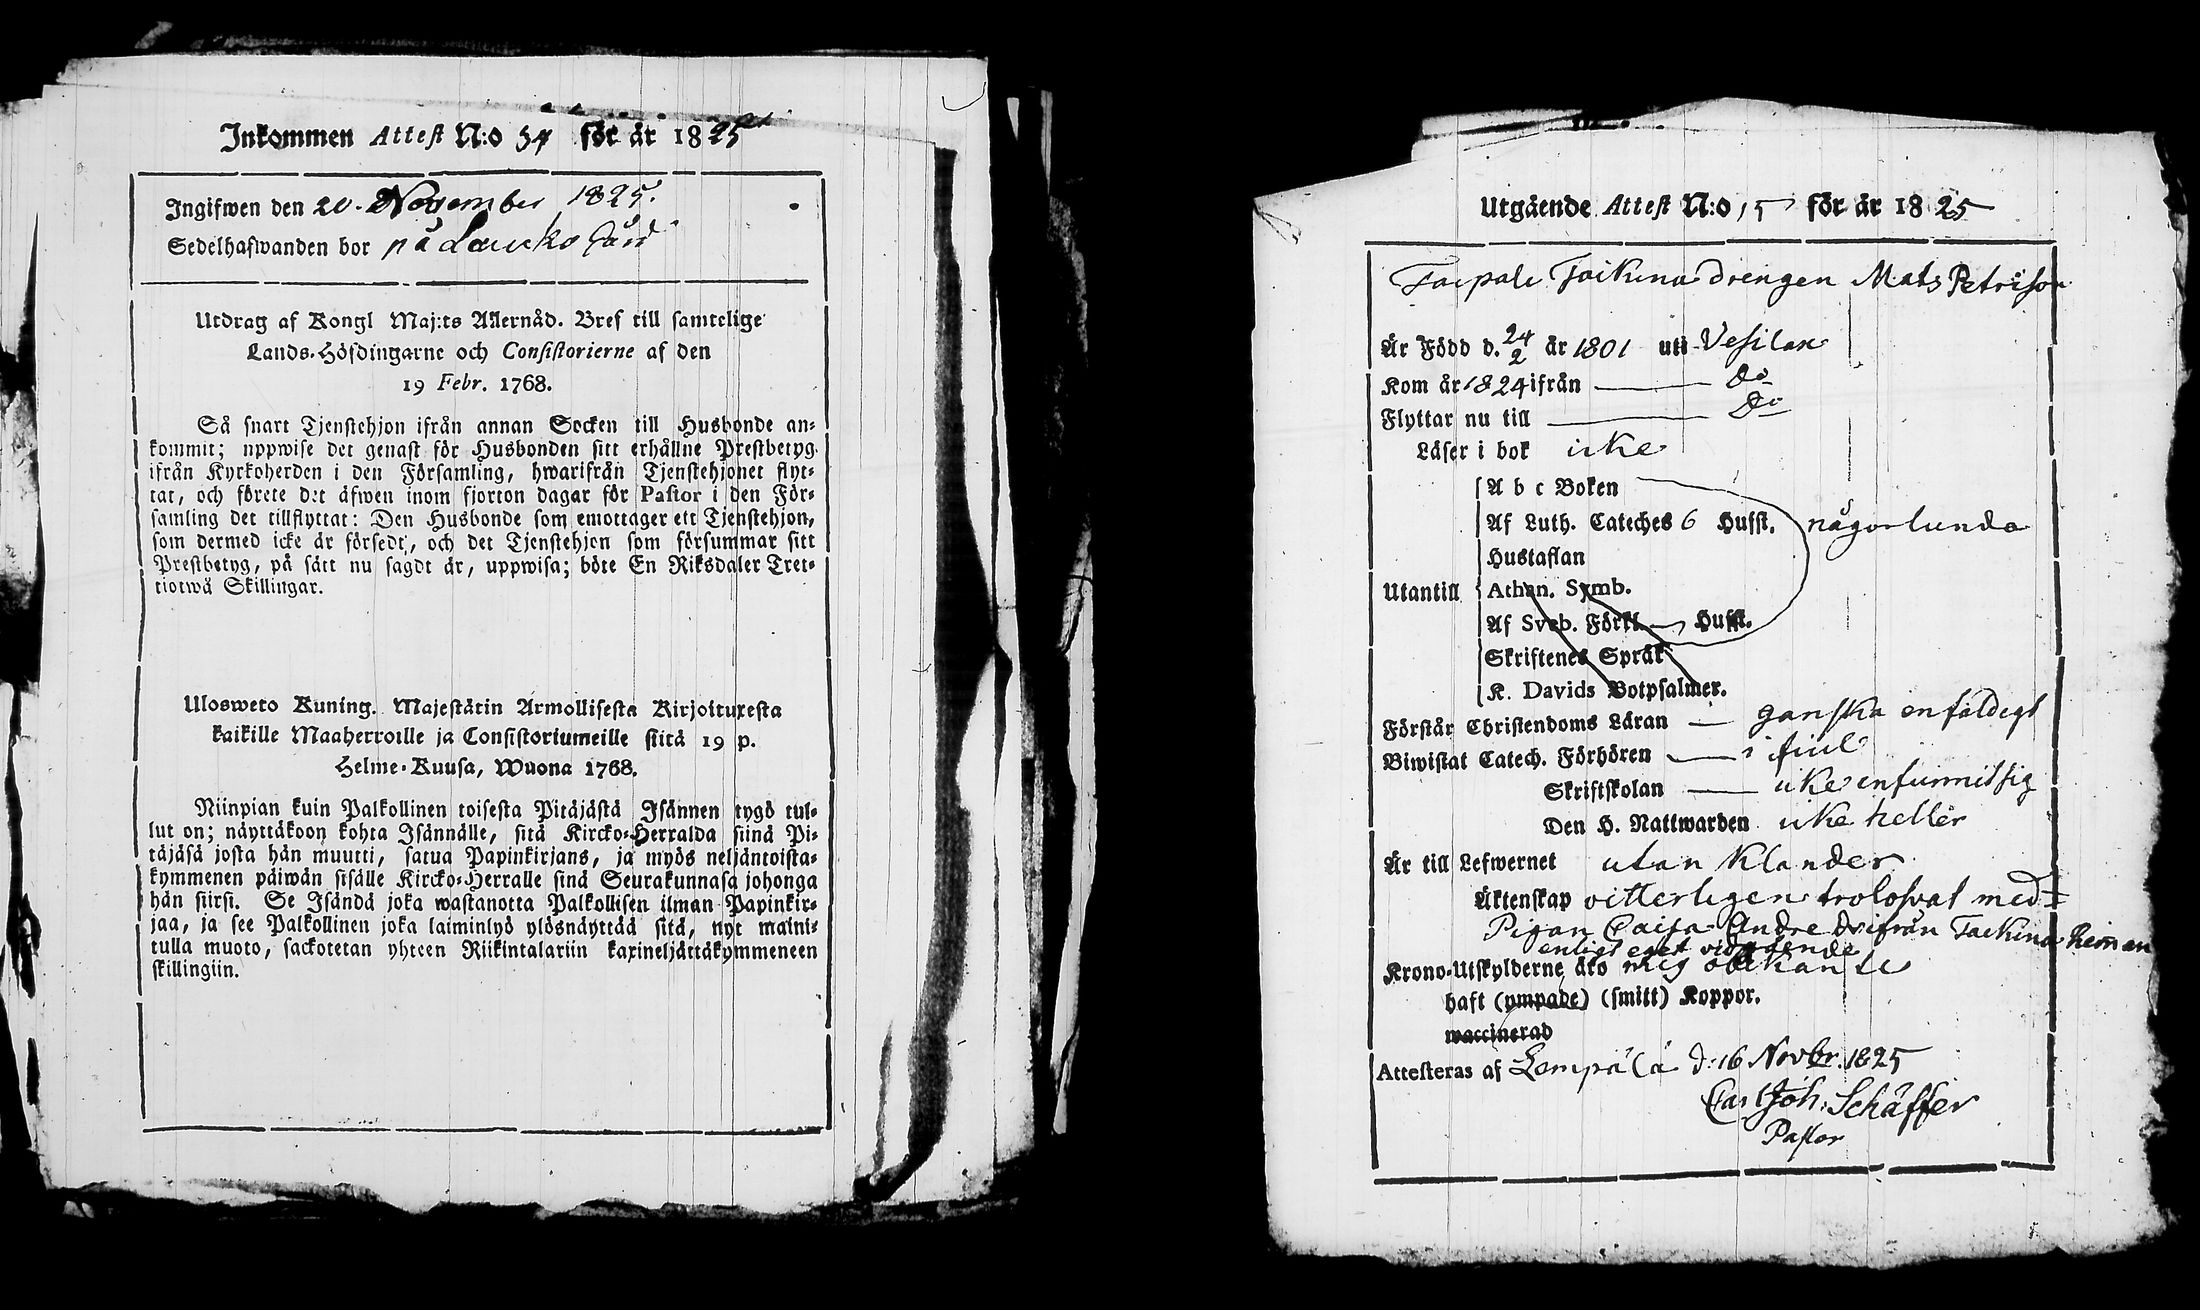 Inkommen Attest N:o 54 för år 1825
Ingifwen den 20. November 1825.
Sedelhafwanden bor på Laucko Gård
Utdrag af Kongl Maj:ts Allernåd. Bref till samtelige
Lands-Höfdingarne och Consistorierne af den
19 Febr. 1768.
Så snart Tjenstehjon ifrån annan Socken till Husbonde an-
kommit; uppwise det genast för Husbonden sitt erhållne Prestbetyg
ifrån Kyrkoherden i den Församling, hwarifrån Tjenstehjonet flyt-
tat, och förete det äfwen inom fjorton dagar för Pastor i den För-
samling det tillflyttat: Den Husbonde som emottager ett Tjenstehjon,
som dermed icke är försedt, och det Tjenstehjon som försummar sitt
Prestbetyg, på sätt nu sagdt är, uppwisa; böte En Riksdaler Tret-
tiotwå Skillingar.
Ulosweto Kuning. Majestätin Armollisesta Kirjoituxesta
kaikille Maaherroille ja Consistoriumeille siitä 19 p.
Helme-Kuusa, Wuona 1768.
Niinpian kuin Palkollinen toisesta Pitäjästä Isännen tygö tul-
lut on; näyttäköön kohta Isännälle, sitä Kircko-Herralda siinä Pi-
täjäsä josta hän muutti, satua Papinkirjans, ja myös neljäntoista-
kymmenen päiwän sisälle Kircko-Herralle sinä Seurakunnasa johonga
hän siirsi. Se Isändä joka wastanotta Palkollisen ilman Papinkir-
jaa, ja see Palkollinen joka laiminlyö ylösnäyttää sitä, nyt maini-
tulla muoto, sackotetan yhteen Riikintalariin kaxineljättäkymmeneen
skillingiin.
Utgående Attest N:o 15 för år 1825
Taipale Taikina Drengen Mats Petrisson
Är Född d. 24/2 år 1801 uti Vesilax
Kom år 1824 ifrån Do
Flyttar nu till Do
Läser i bok icke
A b c Boken
Af Luth. Cateches 6 Hufst. någorlunda
Hustaflan
Utantill Athan. Symb.
Af Sveb. Förkl. Hufst.
Skriftenes Språk
K. Davids Botpsalmer.
Förstår Christendoms Läran ganska enfaldigt
Biwistat Catech. Förhören i fiul
Skriftskolan icke enfinnitlig
Den H. Nattwarden icke heller
Är till Lefwernet utan klander
Äktenskap vitterligen trolofvat med
Pigan Caisa Andre D. ifrån Taikina heman
enligt eget vidgående
Krono-Utskylderne äro mig obekante
haft (ympade) (smitt) Koppor.
waccinerad
Attesteras af Lempälä d: 16 Novbr. 1825
Carl Joh. Schäffer
Pastor